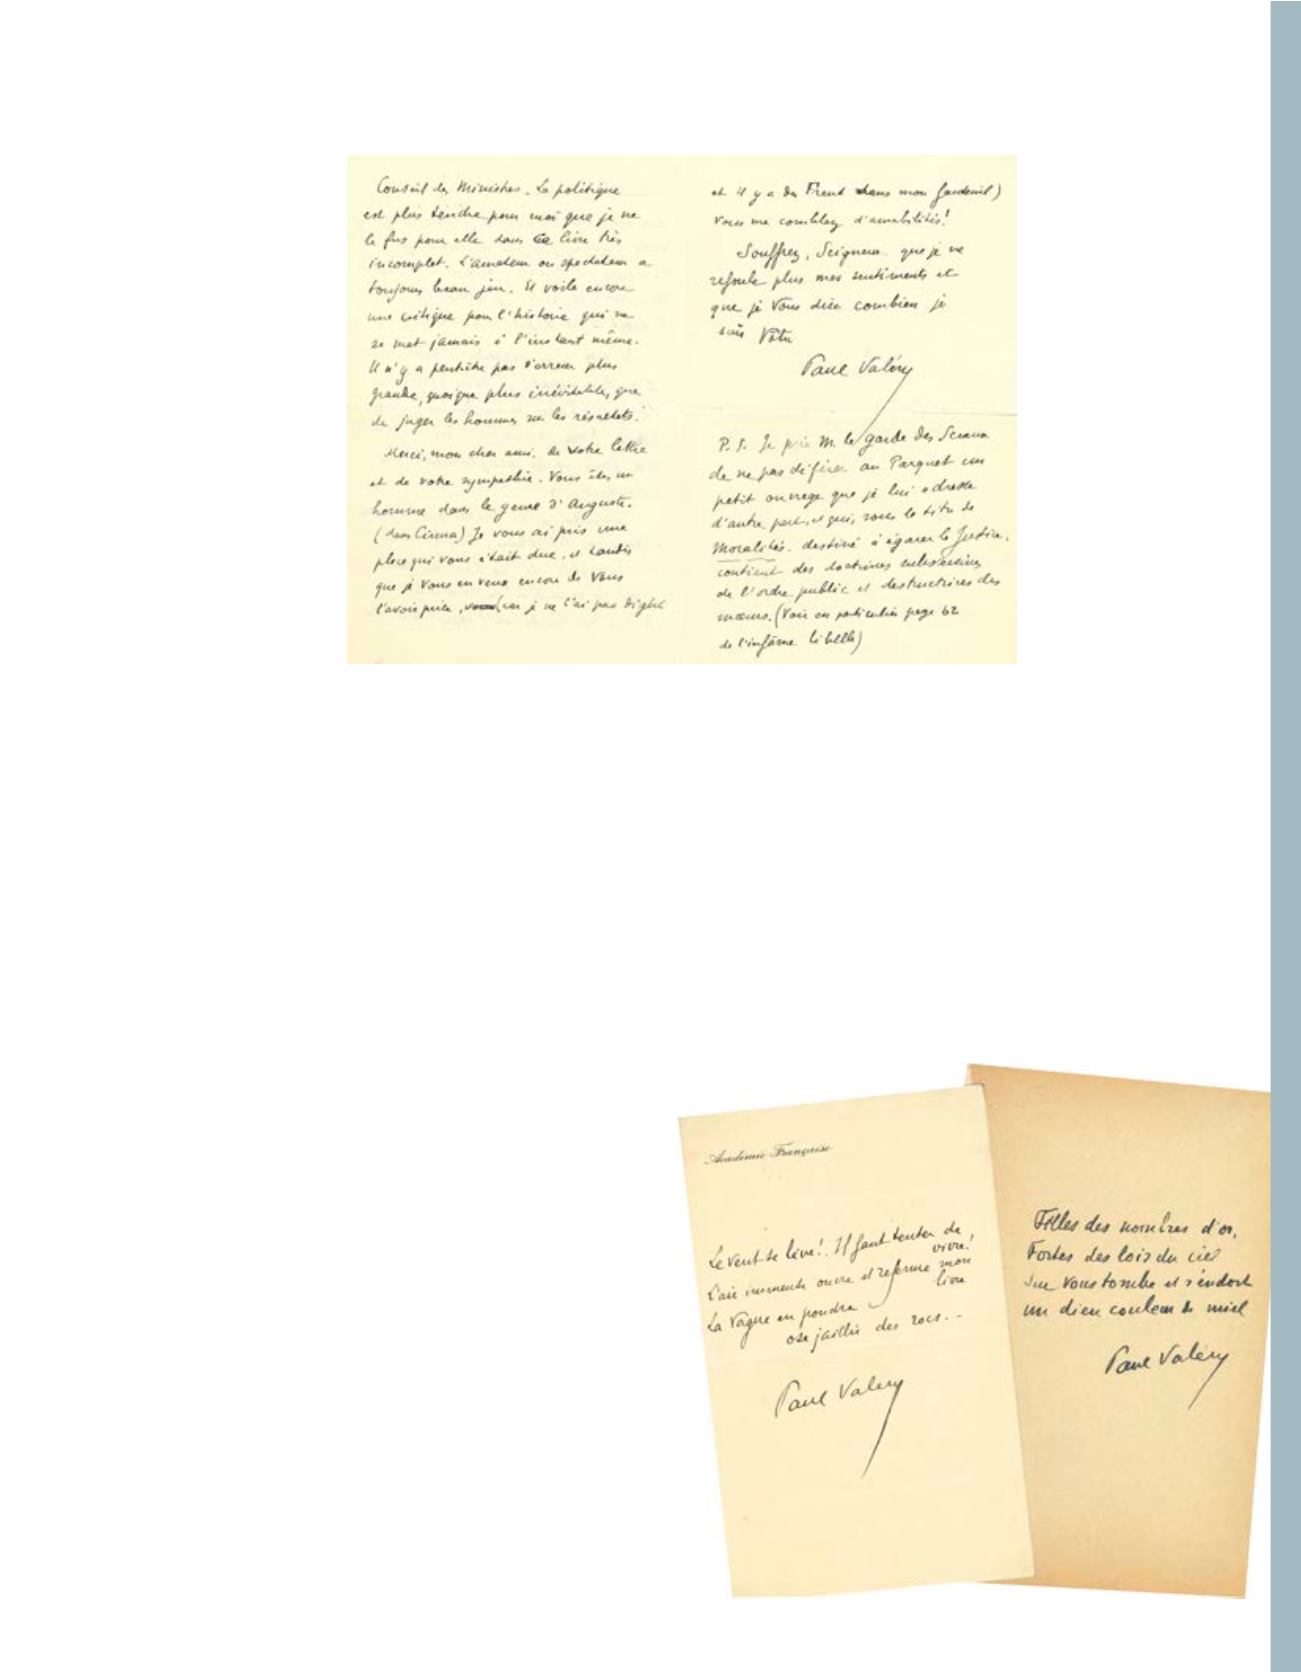 Conseil des Ministres. La politique
est plus tendre pour moi que je ne
le fus pour elle dans ce livre très
incomplet. L'amateur ou spectateur a
toujours beau jeu. Et voilà encore
une critique pour l'histoire qui ne
se met jamais à l'instant même.
Il n'y a peut-être pas d'erreur plus
grande, quoique plus inévitable, que
de juger les hommes sur les résultats.
Merci, mon cher ami, de votre lettre
et de votre sympathie. Vous êtes un
homme dans le genre d'Auguste.
(dans Cinna) Je vous ai pris une
place qui vous était due, et tandis
que je vous en veux encore de vous
l'avoir prise, (car je ne l'ai pas digéré
et il y a du Freud dans mon fauteuil)
vous me comblez d'amabilités!
Souffrez, Seigneur que je ne
refoule plus mes sentiments et
que je vous dise combien je
suis Vôtre
Paul Valéry
P.S. Je prie M. le garde des Sceaux
de ne pas déférer au Parquet un
petit ouvrage que je lui adresse
d'autre part, et qui, sous le titre de
Moralités. destiné à égarer la Justice,
contient des doctrines subversives
de l'ordre public et destructrices des
mœurs. (Voir en particulier page 62
de l'infâme libelle)
Académie Française
Le vent se lève!. Il faut tenter de
vivre!
L'air immense ouvre et referme mon
livre
La vague en poudre
ose jaillir des rocs..
Paul Valéry
Filles des nombres d'or,
Fortes des lois du ciel
Sur vous tombe et s'endort
un dieu couleur de miel
Paul Valéry